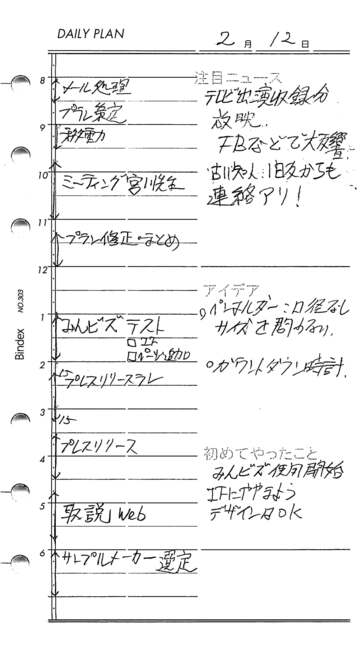 DAILY PLAN
2月 12日
8
メール処理
プラン策定
9
移動
10
ミーティング 宮川先生
11
プラン修正・まとめ
12
1
みんビズ テスト
2
プレスリリース
3
15
プレスリリース
4
5
取説」Web
6
サンプルメーカー選定
注目ニュース
テレビ出演収録分
放映..
FBなどで大反響
古い知人:旧友からも
連絡アリ!
アイデア
ペンホルダー:口径なし
サイズを問わない
カウントダウン時計.
初めてやったこと
みんビズ使用開始
デザインはOK
Bindex NO.303